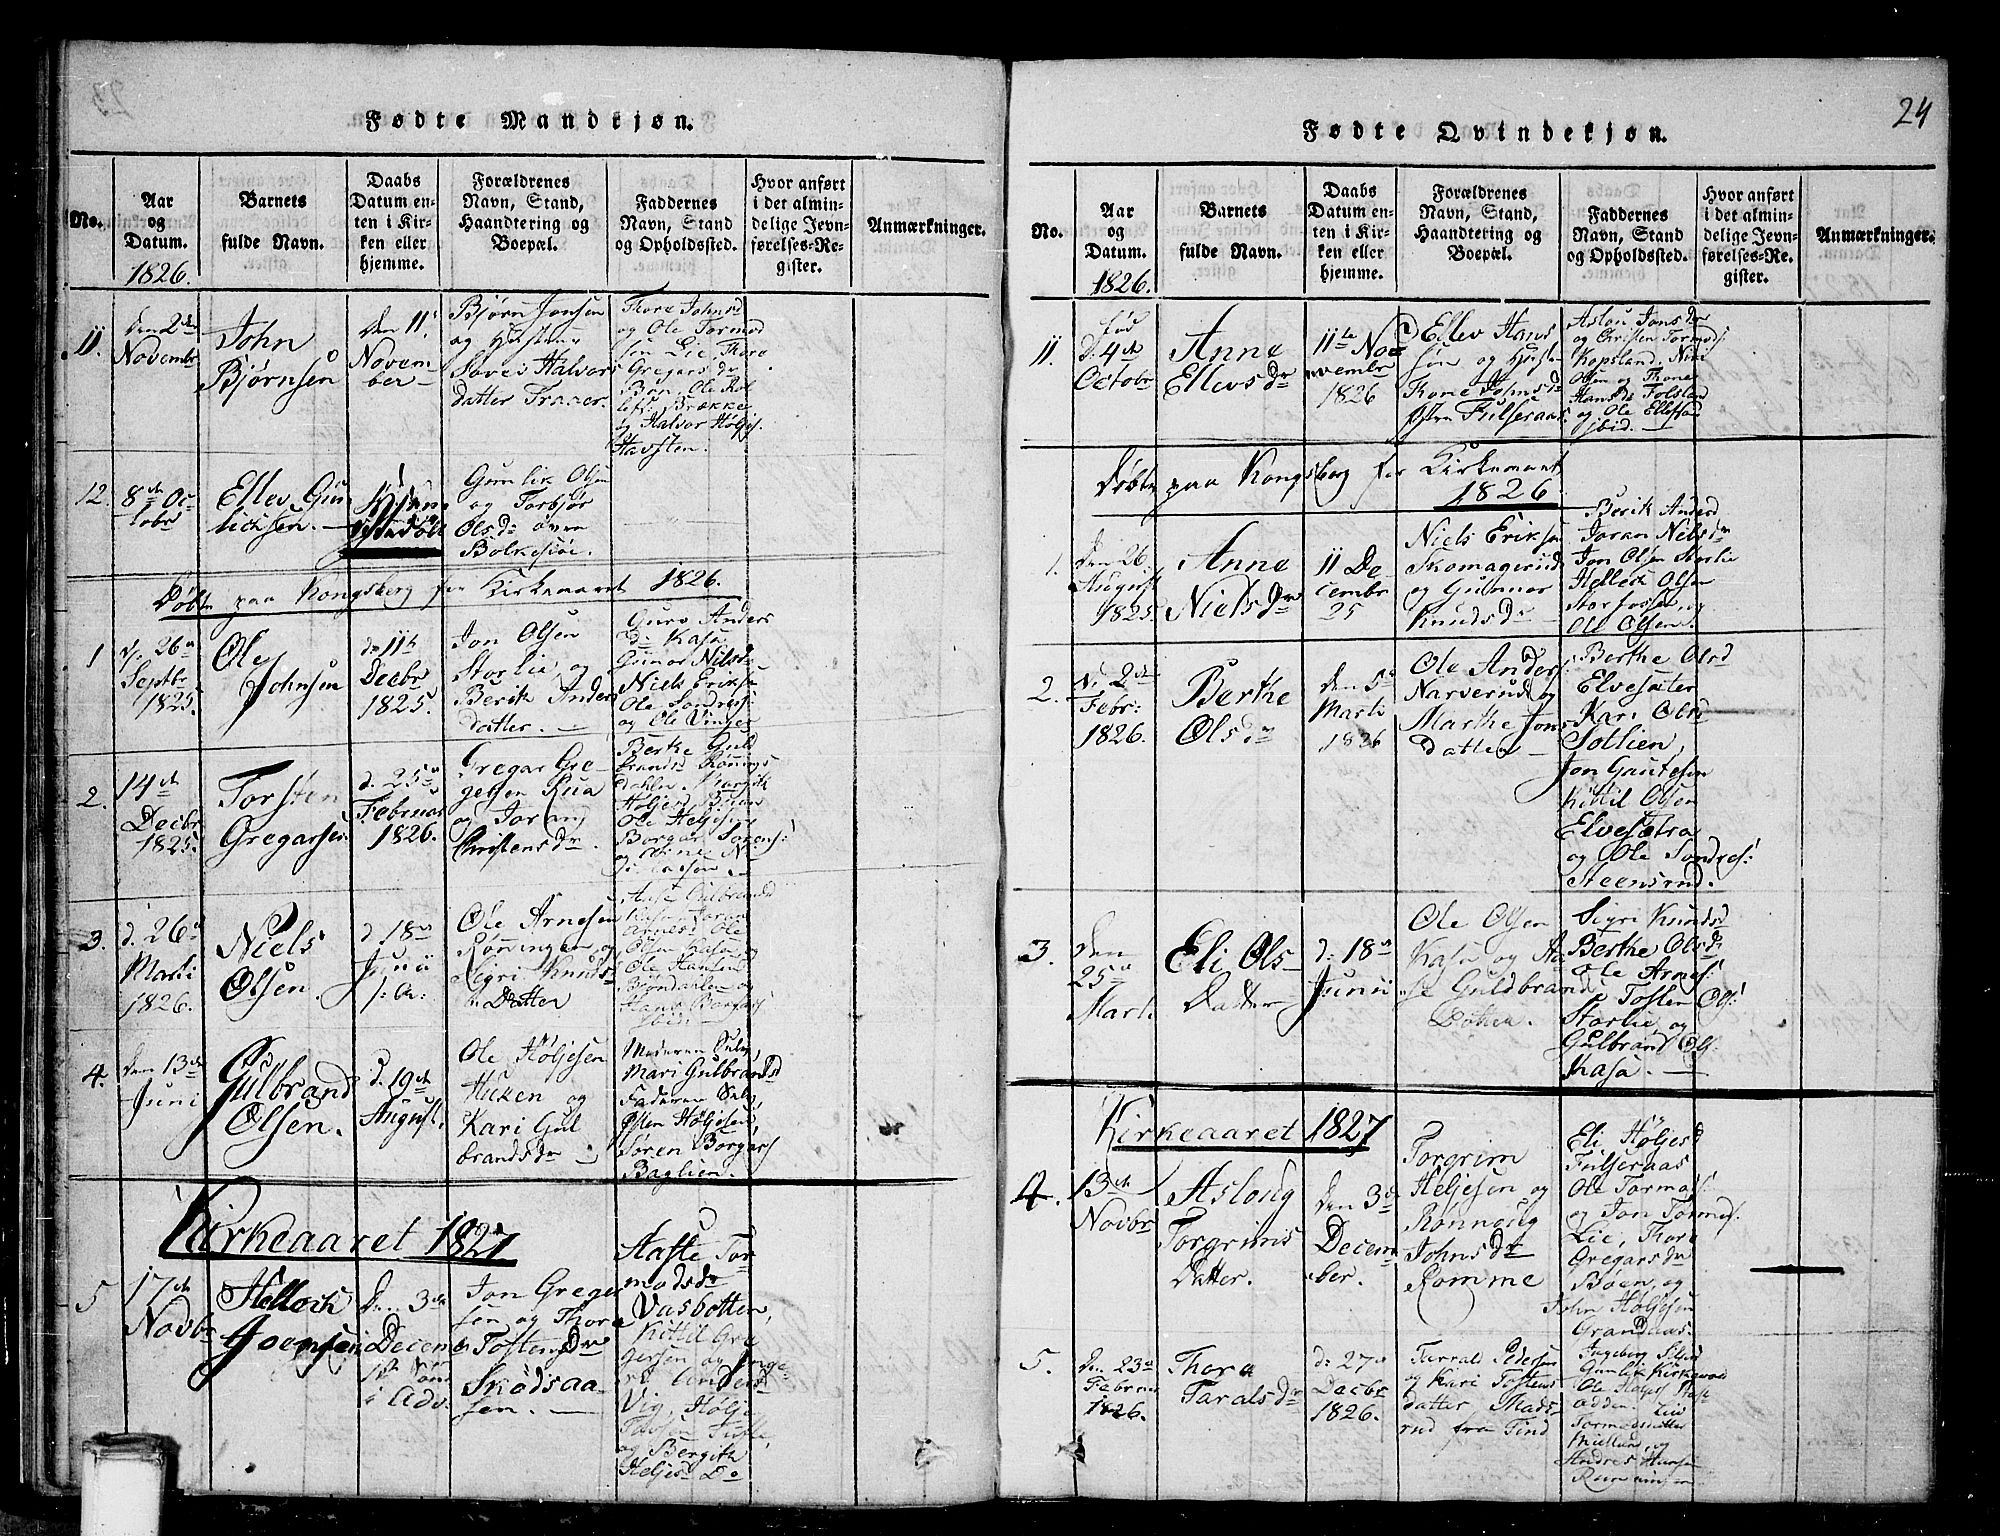 Fødte Mandkjøn.
No.
Aar
og
Datum.
1826.
Barnets
fulde Navn.
Daabs
Datum en-
ten i Kir-
ken eller
hjemme.
Forældrenes
Navn, Stand,
Haandtering og
Boepæl.
Faddernes
Navn, Stand
og Opholdssted.
Hvor anført
i det almin-
delige Jevn-
førelses-Re-
gister.
Anmærkninger.
11.
den 2den
Novembr
John
Bjørnsen
den 11te
Novem-
ber
Bjørn Jonsen
og Hustru
Sovei Halvors
datter Traaer.
Thore Johnsd
og Ole Tormod
sen Lie, Thore
Gregars dr
Bøen, Ole Rol
lefs. Brække
og Halvor Høljes.
Havsten.
12.
8de Oc-
tobr
Ellev Gun
lichsen.
Hjem-
mødøbt
Gunlik Olsen
og Torbjør
Olsdr øvre
Bolkesiøe.
Døbte paa Kongsberg for Kirkeaaret 1826.
1
d. 26de
Septbr
1825.
Ole
Johnsen
d. 11te
Decbr
1825.
Jon Olsen
Storlie og
Berit Anders
datter.
Guro Anders
dr Kasa
Gunor Nilsd
Niels Eriksen
Ole Sondres:
og Ole Vinger
2.
14de
Decbr
1825.
Torsten
Gregarsen
d. 25de
Februar
1826.
Gregar Gre-
gersen Rua
og Joran
Christensdr.
Berthe Guld
brandsd Rønings
dahlen.
Høljes
Ole Heljesen
Borgar Sorens:
og Arne
3.
d. 26de
Marti
1826.
Niels
Olsen
d. 18de
Junii
Ole Arnesen
Rønningen og
Sigri Knuds-
Datter
Aase Gulbrandsd
Kasa, Joran
Arnesd Ole
Olsen Kasa
Ole Hansen
Bjøndahlen og
Hans Borgars:
ibid
4.
den 13de
Juni
Gulbrand
Olsen.
d. 19de
August.
Ole Høljesen
Hicken og
Kari Gul
brandsdr
Moderen Selv,
Mari Gulbrandsd
Faderen Selv,
Østen Høljesen,
Søren Borgars
Baglien.
Kirkeaaret 1827
5
17de
Novbr
Hellech
Joensen
den 3de
Decemb
1ste Søn:
i Adv.
Jon Greger
sen og Thore
Tostensdr
Skødsaa-
sen.
Aaste Tor-
modsdr
Vasbotten,
Kittil Gre
gersen og Inge
Vig, Hølje
og Bergith
Heljesd Do
24
Fødte Qvindekjøn.
No.
Aar
og
Datum.
1826.
Barnets
fulde Navn.
Daabs
Datum en-
ten i Kir-
ken eller
hjemme.
Forældrenes
Navn, Stand,
Haandtering og
Boepæl.
Faddernes
Navn, Stand
og Opholdssted.
Hvor anført
i det almin-
delige Jevn-
førelses-Re-
gister.
Anmærkninger.
11.
fød
d. 4de
Octobr
Anne
Ellevsdr
11te No-
vembr
1826
Ellev Hans
søn og Hustr
Tone Johnsdr
Østre Fulseraas
Aslou Jonsdr
og Christen Tormods:
Kopsland. Nils
Olsen og Thone
Hansdr Folsland
og Ole Ellefsen
ibid.
Døbte paa Kongsberg for Kirkeaaret
1826
1.
den 26.
August
1825.
Anne
Nielsdr
11 De-
cembr
25
Niels Eriksen
Skomagerud
og Gunnor
Knudsdr
Berit Andersd
Joran Nielsdr
Jon Olsen Storlie
Hellech Olsen
Storfossen, og
Ole Olsen.
2.
d. 2den
Febr:
1826.
Berthe
Olsdr
den 5te
Marti
1826
Ole Anders:
Narverud og
Marthe Jons
datter
Berthe Olsd
Elvesæter
Kari Olsd
Sollien,
Jon Gautesen
Kittil Olsen
Elvesætra
og Ole Sondres:
Steensrud.
3.
den
25de
Marti
Eli Ols-
Datter
d. 18de
Junii
Ole Olsen
Kasa og Aa-
se Guldbrands
Datter.
Sigri Knudsd
Berthe Olsdr
Ole Arnes:
Tosten Ols:
Storlie og
Gulbrand Ols:
Kasa.
Kirkeaaret 1827
4.
13de
Novbr
Aslaug
Torgrims
Datter.
den 3de
Decem-
ber.
Torgrim
Heljesen og
Rønnoug
Johnsdr
Romme
Eli Høljesd
Fulseraas
Ole Tormods:
og Jon Tormods:
Lie, Thore
Gregarsdr
Bøen, og
John Høljesen
Grandaas.
5.
den 23de
Februar
1826.
Thora
Taralsdr
d: 27de
Decbr
1826.
Tarrald Pedersen
og Kari Tostens
datter, Mads-
rud fra Tind
Ingeborg
Gunlik Kirkevold
Ole Høljes
Liv
Tormodsdatter
og
Andres Hansen